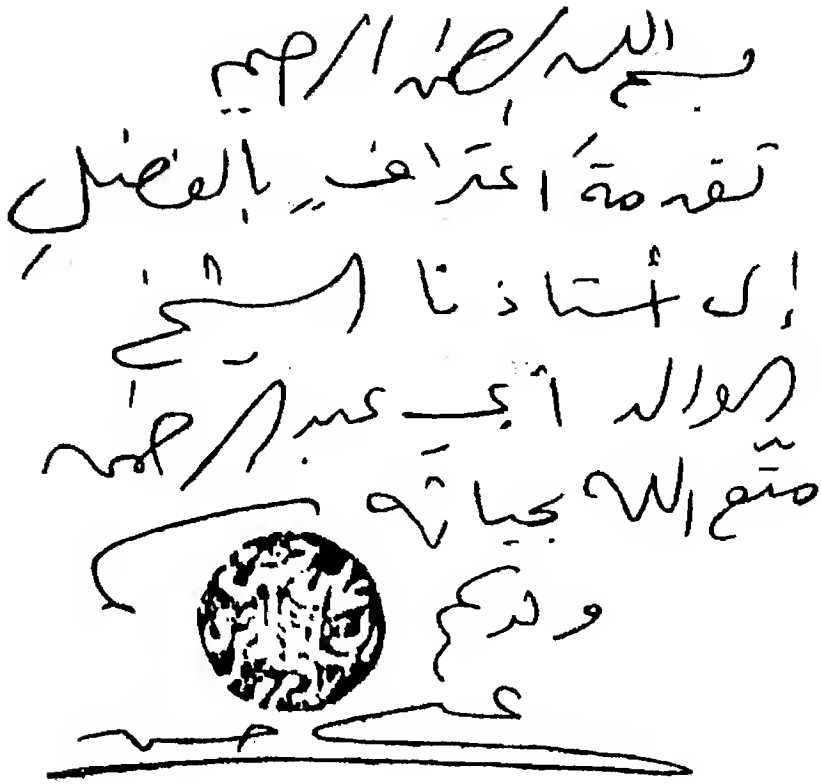 بسم الله الرحمن الرحيم
تقدمةَ اعترافٍ بالفضلِ
إلى أستاذنا الشيخ
الوالد أبي عبد الرحمن
متّع الله بحياته
ولدكم
علي حسن